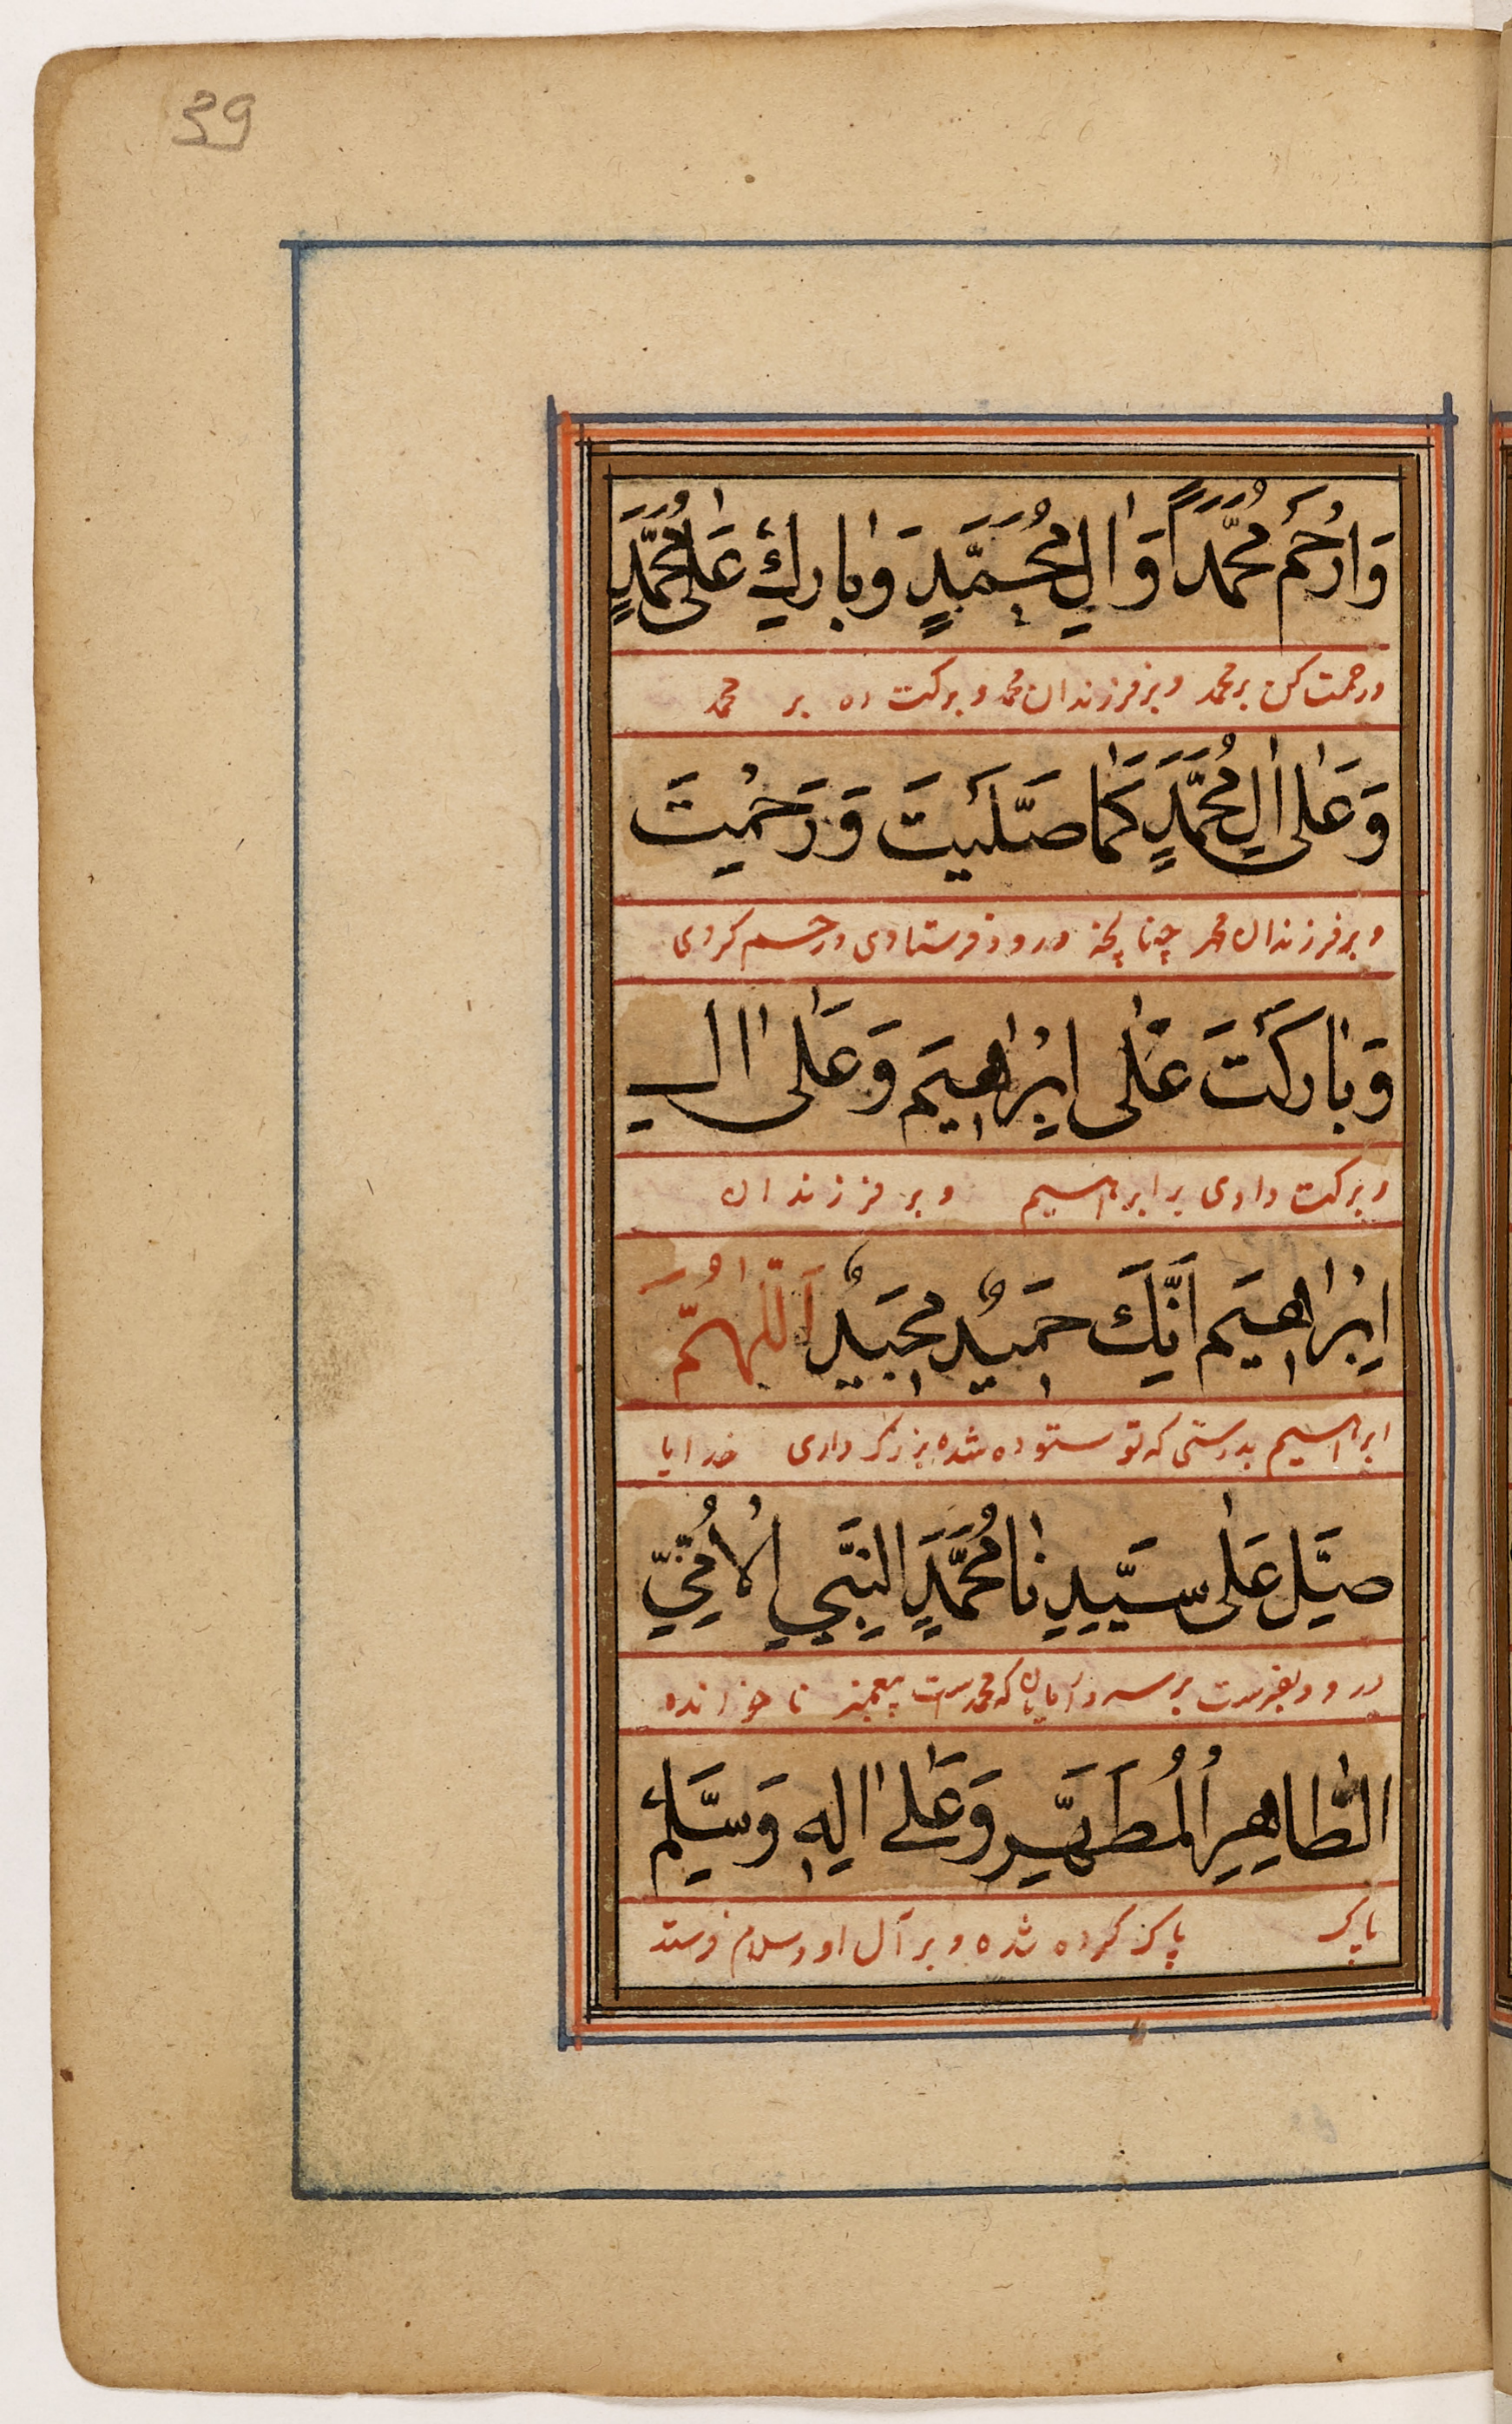 39
وَارْحَمْ مُحَمَّدًا وَاٰلِ مُحَمَّدٍ وَبٰارِكْ عَلٰى مُحَمَّدٍ
ورحمت کن بر محمد و بر فرزندان محمد و برکت ده بر محمد
وَعَلٰى اٰلِ مُحَمَّدٍ كَمٰا صَلَّيْتَ وَرَحِمْتَ
و بر فرزندان محمد چنانچه درود فرستادی و رحم کردی
وَبٰارَكْتَ عَلٰى اِبْرٰاهٖيمَ وَعَلٰى اٰلِ
و برکت دادی بر ابراهیم و بر فرزندان
اِبْرٰاهٖيمَ اِنَّكَ حَمٖيدٌ مَجٖيدٌ اَللّٰهُمَّ
ابراهیم بدرستی که تو ستوده شده بزرگواری خدایا
صَلِّ عَلٰى سَيِّدِنٰا مُحَمَّدٍ النَّبِيِّ الْاُمِّيِّ
درود بفرست بر سرور آقایان که محمدست پیغمبر نا خوانده
الطّٰاهِرِ الْمُطَهَّرِ وَعَلٰى اٰلِهٖ وَسَلِّمْ
پاک پاک کرده شده و بر آل او و سلام فرست